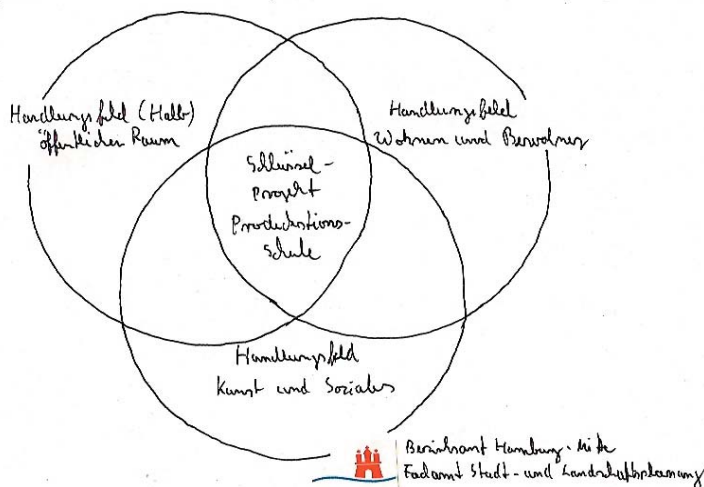 Handlungsfeld (Halb)
öffentlicher Raum
Handlungsfeld
Wohnen und Bewohner
Schlüssel-
projekt
Produktions-
schule
Handlungsfeld
Kunst und Soziales
Bezirksamt Hamburg-Mitte
Fachamt Stadt- und Landschaftsplanung